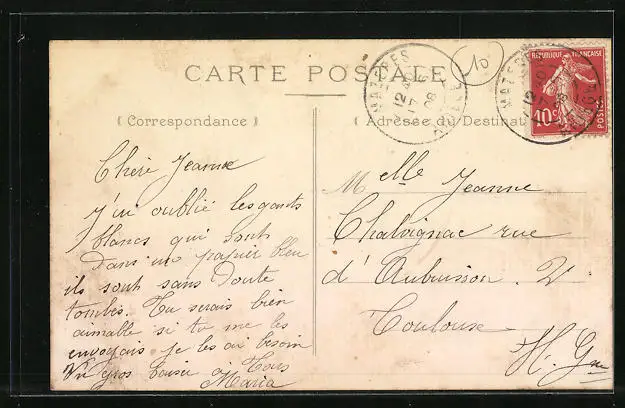 CARTE POSTALE
10
MAZERES
12 40
17
08
MAZERES
12 40
REPUBLIQUE FRANÇAISE
10c
POSTES
( Correspondance )
( Adresse du Destinat
Chère Jeanne
J'ai oublié les gants
blancs qui sont
dans un papier bleu
ils sont sans doute
tombés. Tu serais bien
aimable si tu me les
envoyais je les ai besoin
Un gros baiser à Tous
Maria
Melle Jeanne
Chalvignac rue
d'Aubuisson. V.
Toulouse
H. Gne